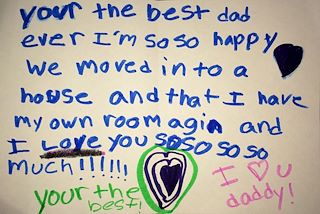 your the best dad
ever I'm so so happy
we moved in to a
house and that I have
my own room agin and
I Love you so so so so
much!!!!!!
your the
best!
I u
daddy!